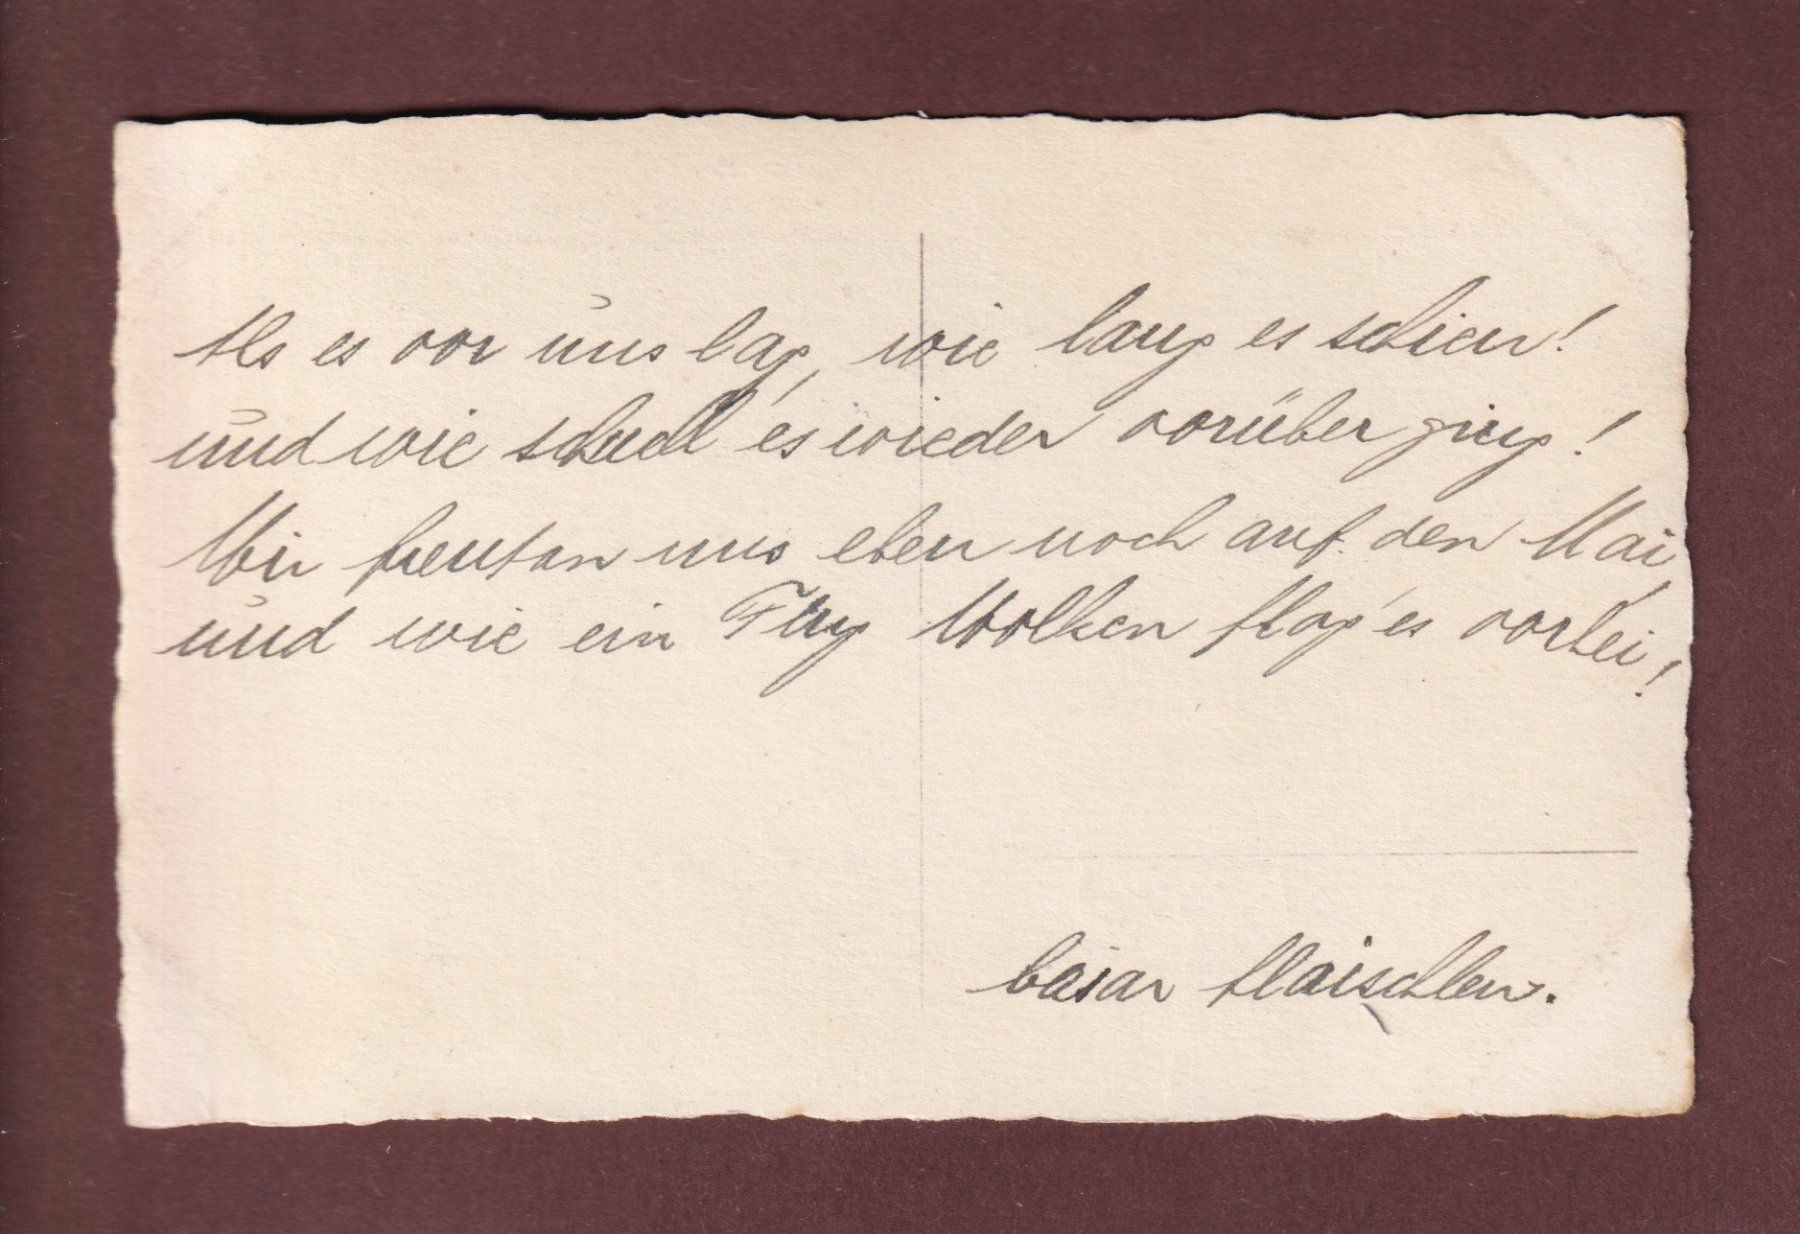 Als es vor uns lag, wie lang es schien!
und wie schnell es wieder vorüber ging!
Wir freuten uns eben noch auf den Mai
und wie ein Flug Wolken flog's es vorbei!
Cäsar Flaischlen.